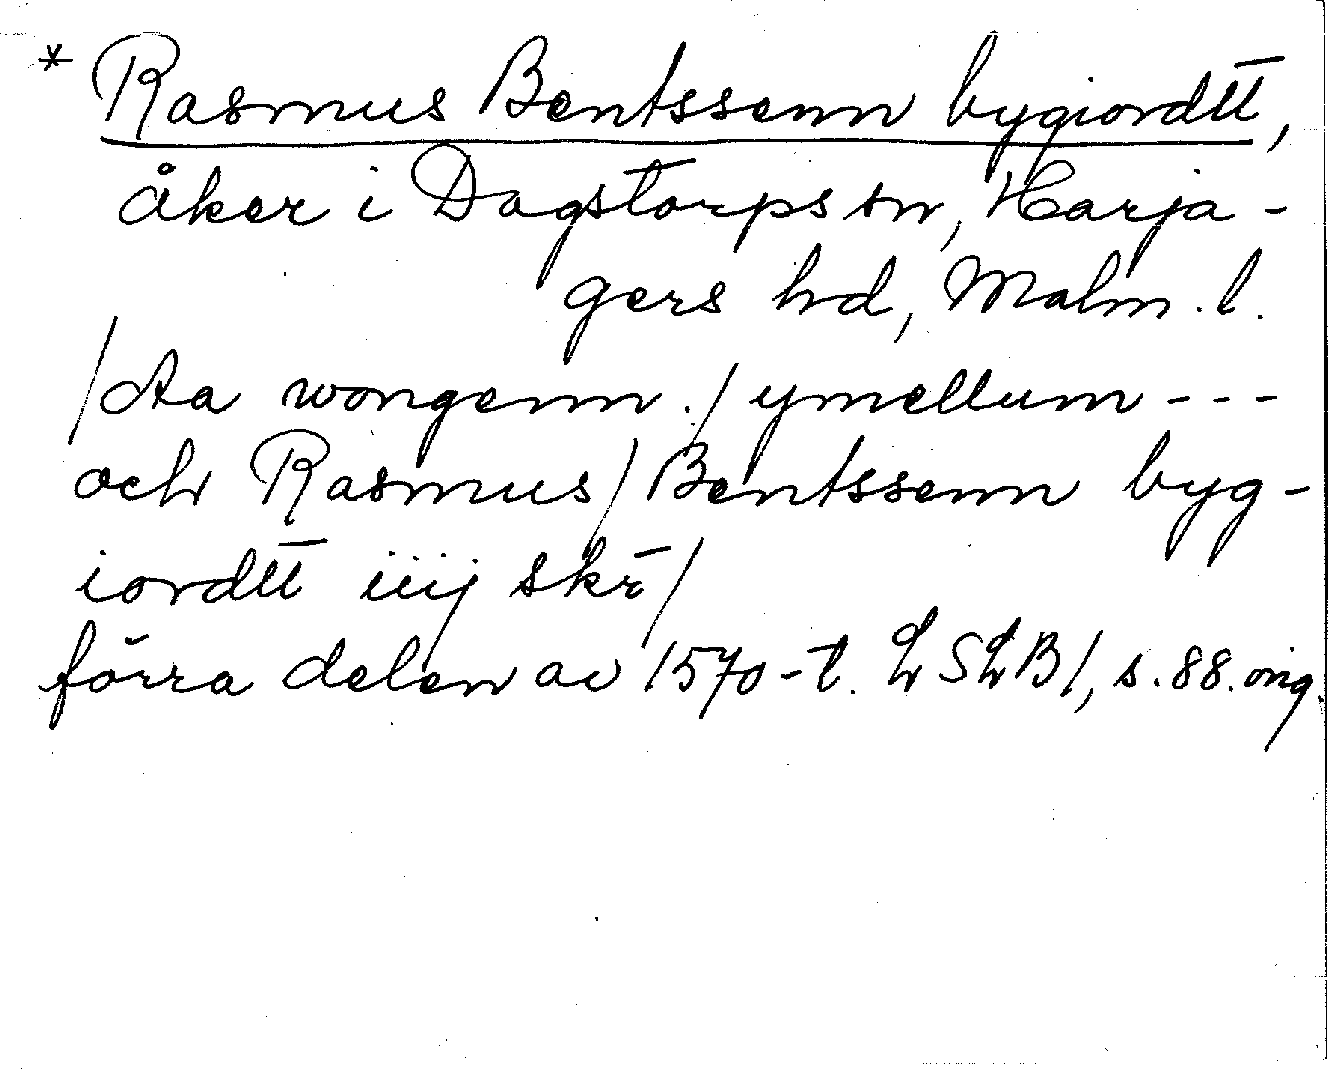 * Rasmus Bentssenn bygiordtt,
åker i Dagstorps sn, Harja-
gers hd, Malm. l.
/Aa wongenn ./ ymellum ---
och Rasmus/ Bentssenn byg-
iordtt iiij skr̄/
förra delen av 1570-t. LSLB1, s. 88. orig.